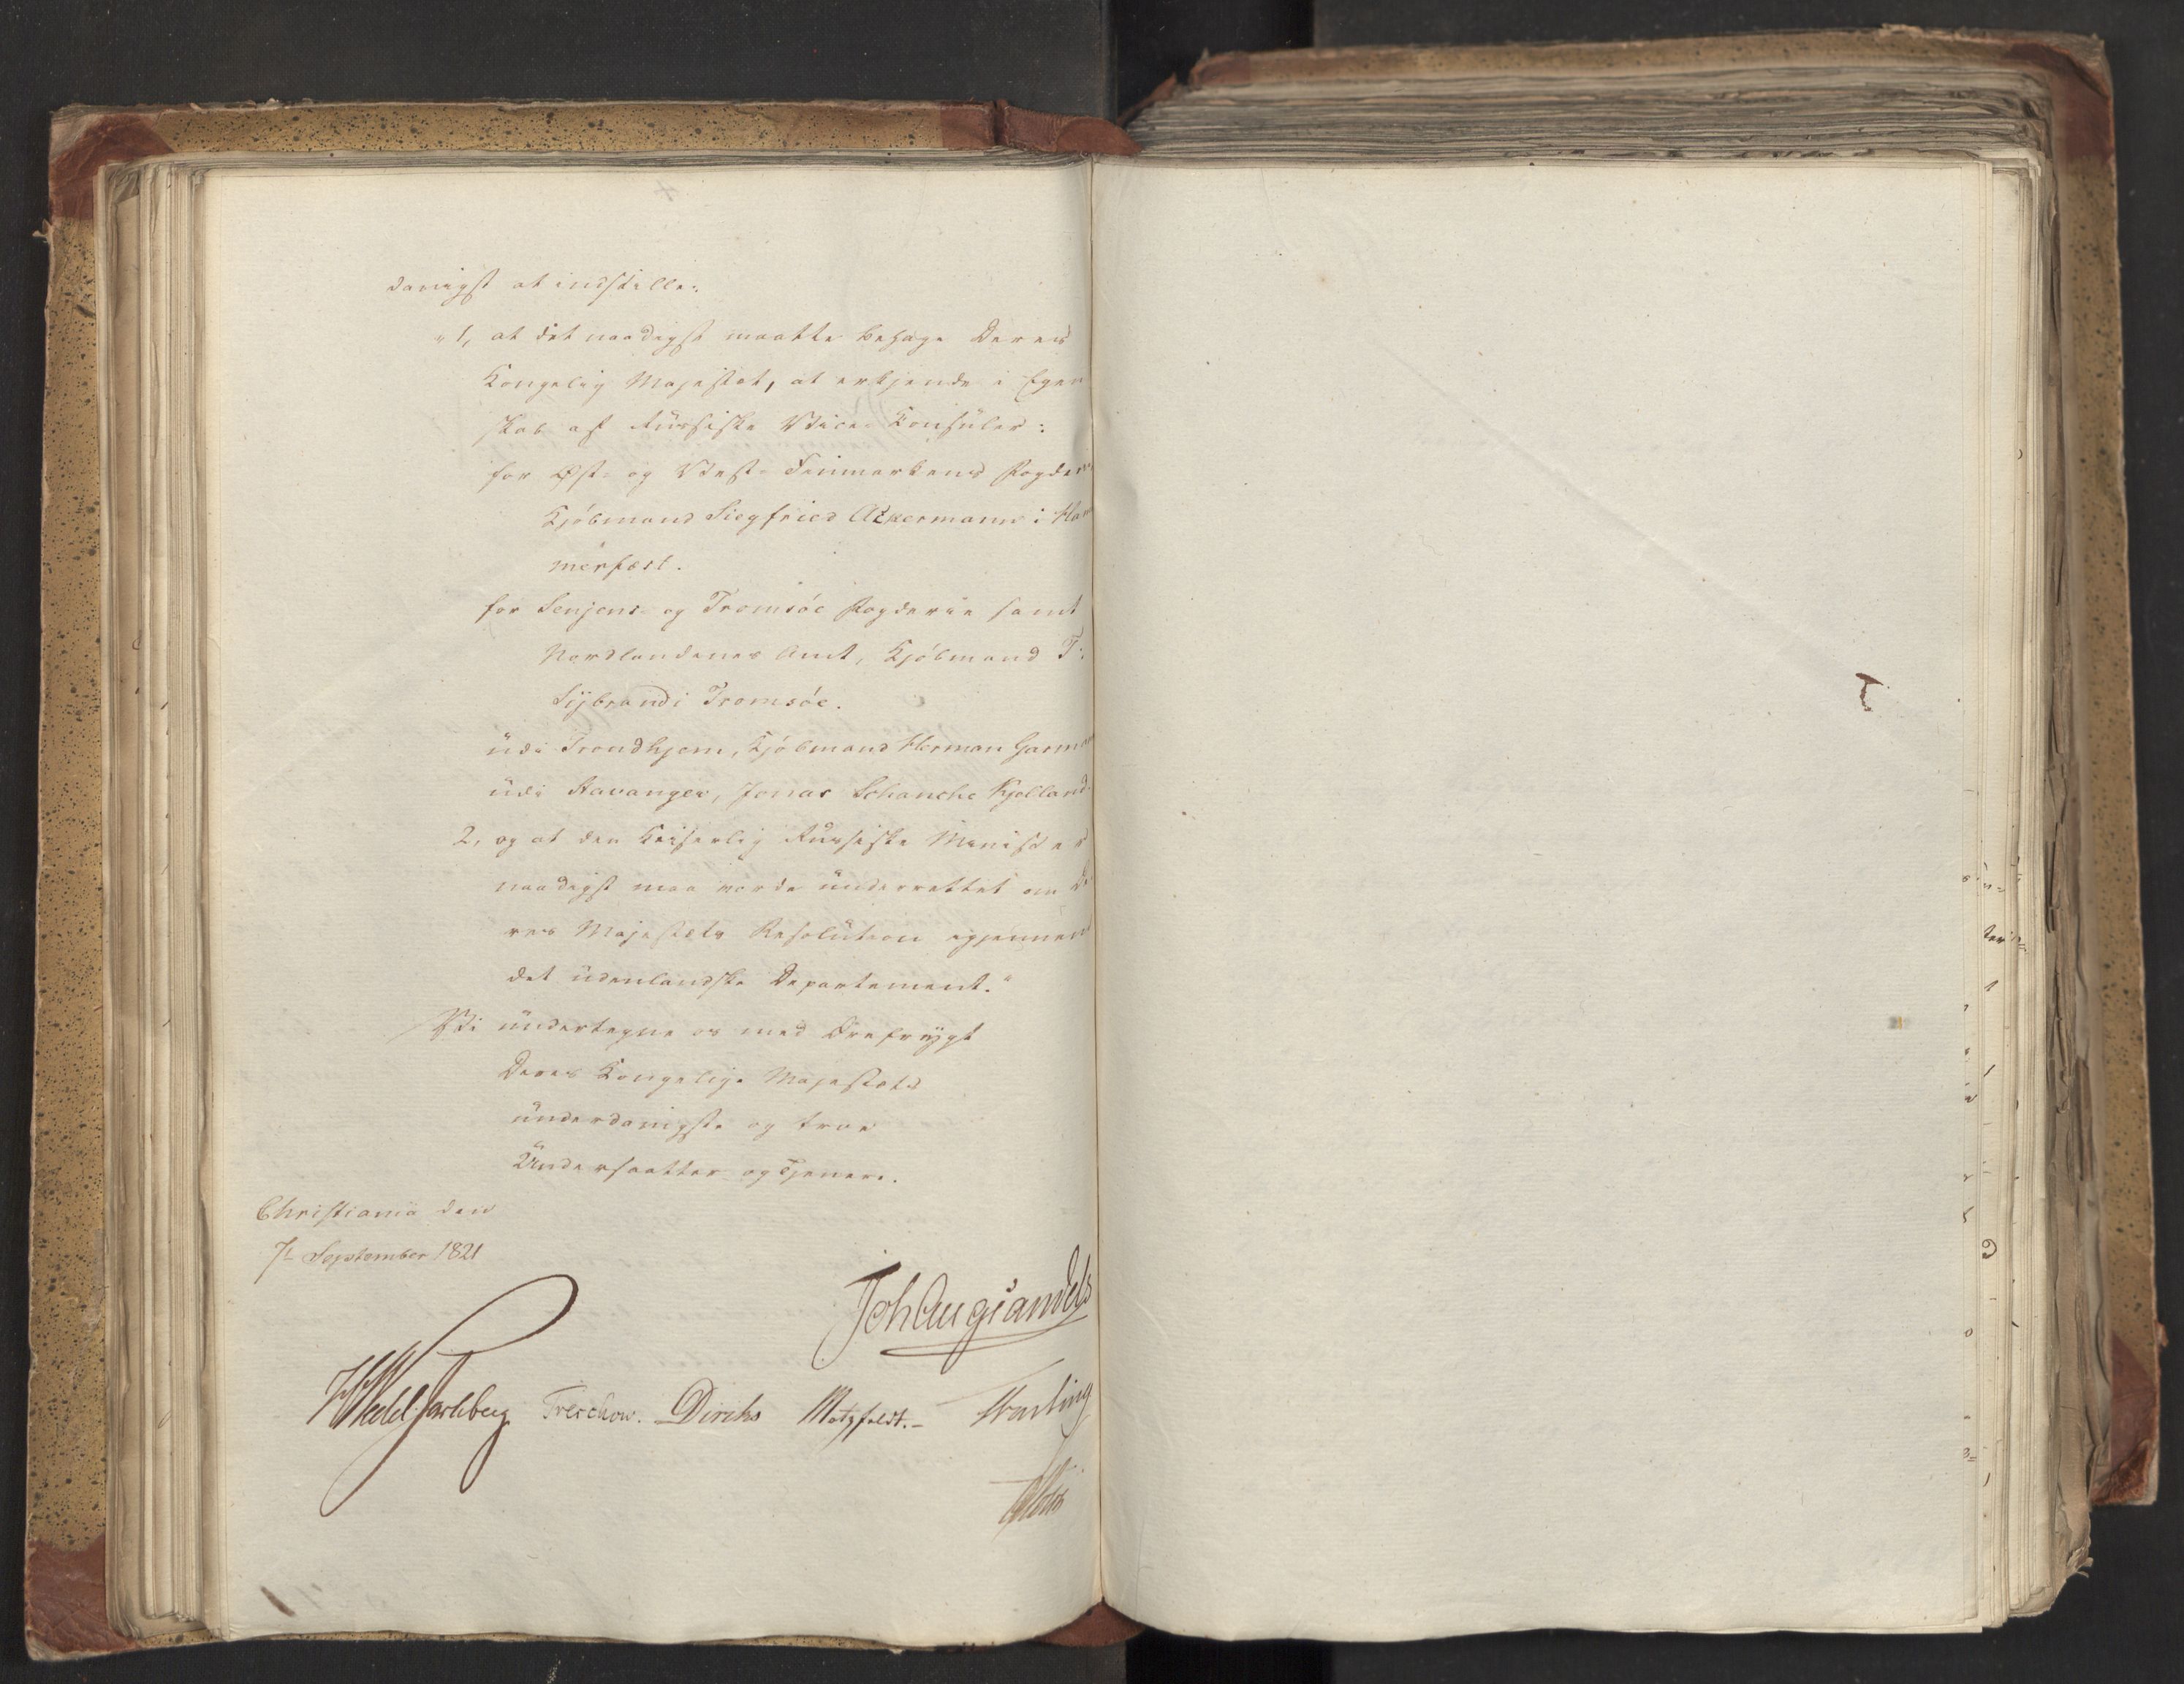 danigst at indstille:
"1, at det naadigst maatte behage Deres
Kongelig Majestæt, at erkjende i Egen
skab af Russiske Vice-Konsuler:
for Øst- og Vest-Finmarkens Fogderie
Kjöbmand Siegfried Akkermann i Ham
merfest.
for Senjens- og Tromsöe Fogderie samt
Nordlandenes Amt, Kjöbmand T.
Sijbrandi Tromsöe.
udi Trondhjem, Kjöbmand Herman Garmann
udi Stavanger, Jonas Schanche Kjelland.
2, og at den Keiserlig Russiske Minister
naadigst maa vorde underrettet om De
res Majestæts Resolution igjennem
det udenlandske Departement."
Vi undertegne os med Ærefrygt
Deres Kongelige Majestæts
underdanigste og troe
Undersaatter og Tjenere.
Christiania den
7de September 1821
Joh Aug Sandels
HWedel Jarlsberg Treschow. Diriks Motzfeldt.- Fasting
Holst